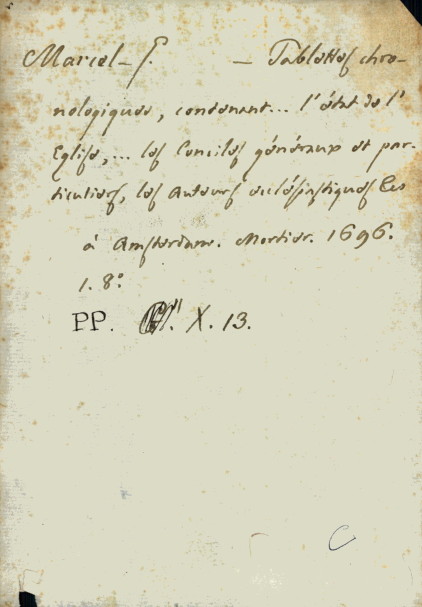 Marcel - G. — Tablettes chro-
nologiques, contenant... l'état de l'
Eglise,... les Conciles généraux et par-
ticuliers, les auteurs ecclésiastiques &es
à Amsterdam. Mortier. 1696.
1. 8°.
PP. X. 13.
C